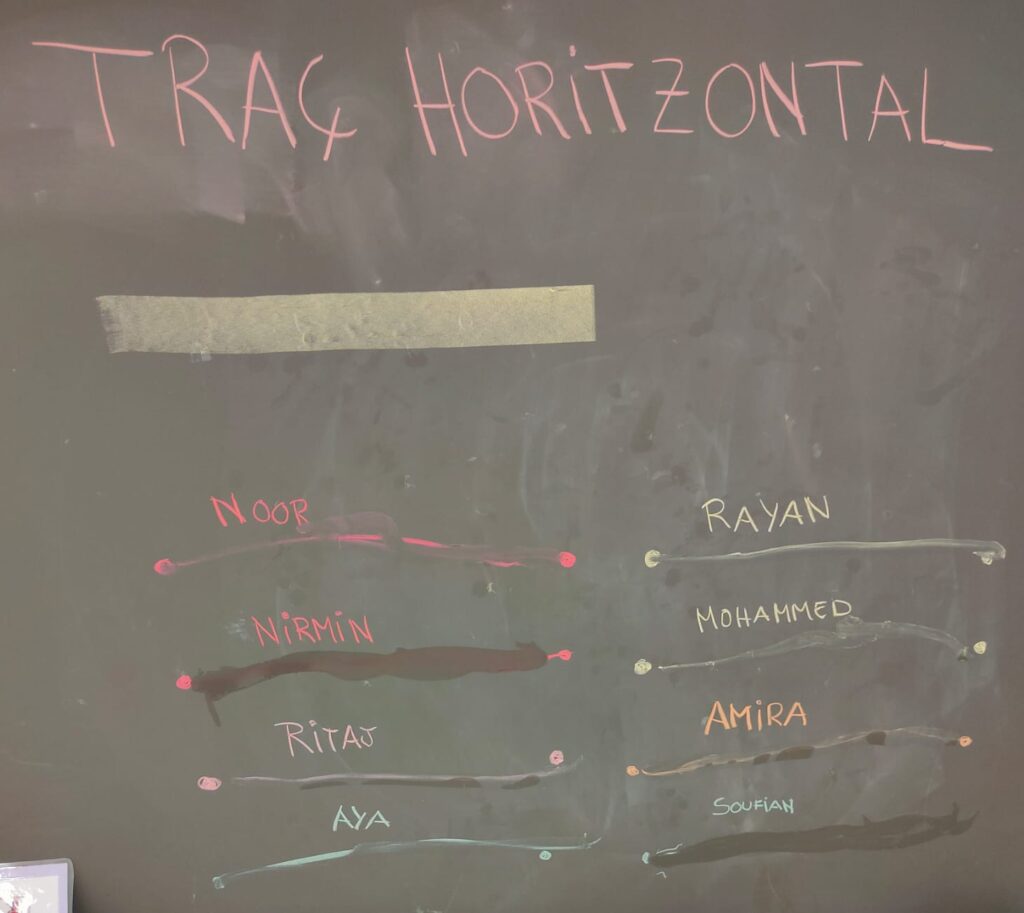 TRAÇ HORITZONTAL
NOOR
RAYAN
NiRMiN
MOHAMMED
RiTAJ
AMiRA
AYA
SOUFiAN